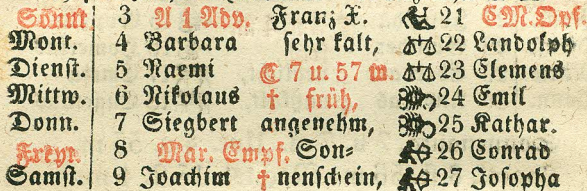 Sonnt. 3 A 1 Adv. Franz X. 21 C M. Opf.
Mont. 4 Barbara sehr kalt, 22 Landolph
Dienst. 5 Naemi ☾ 7 u. 57 m. 23 Clemens
Mittw. 6 Nikolaus † früh, 24 Emil
Donn. 7 Siegbert angenehm, 25 Kathar.
Freyt. 8 Mar. Empf. Son- 26 Conrad
Samst. 9 Joachim † nenschein, 27 Josopha